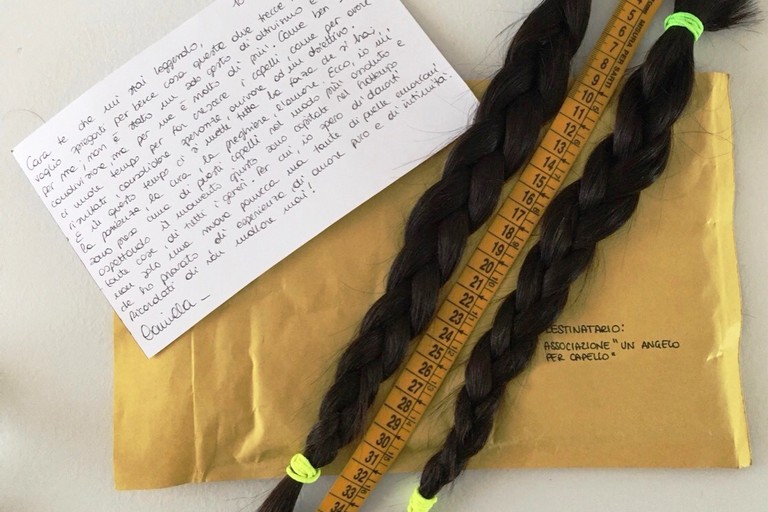 Cara te che mi stai leggendo,
voglio spiegarti per bene cosa queste due trecce
per me non è stato un solo gesto di altruismo e
condivisione, ma per me è molto di più. Come ben
ci vuole tempo per far crescere i capelli, come per avere
risultati, consolidare speranze, arrivare ad un obiettivo.
E in questo tempo ci si mette tutta la forza che si ha,
la pazienza, la cura, la preghiera, l'amore. Ecco, io mi
sono presa cura di questi capelli nel modo più assoluto e
aspettando il momento giusto sono capitate nel frattempo
tante cose, di tutti i generi. Per cui, io spero di donarti
non solo una nuova parrucca ma tante di quelle emozioni
che ho provato di esperienza di amore puro e di intimità.
Ricordati di non mollare mai!
Camilla
DESTINATARIO:
ASSOCIAZIONE "UN ANGELO
PER CAPELLO"
MISURA PER SARTI
4
5
6
7
8
9
10
11
12
13
14
15
16
17
18
19
20
21
22
23
24
25
26
27
28
29
30
31
32
33
34